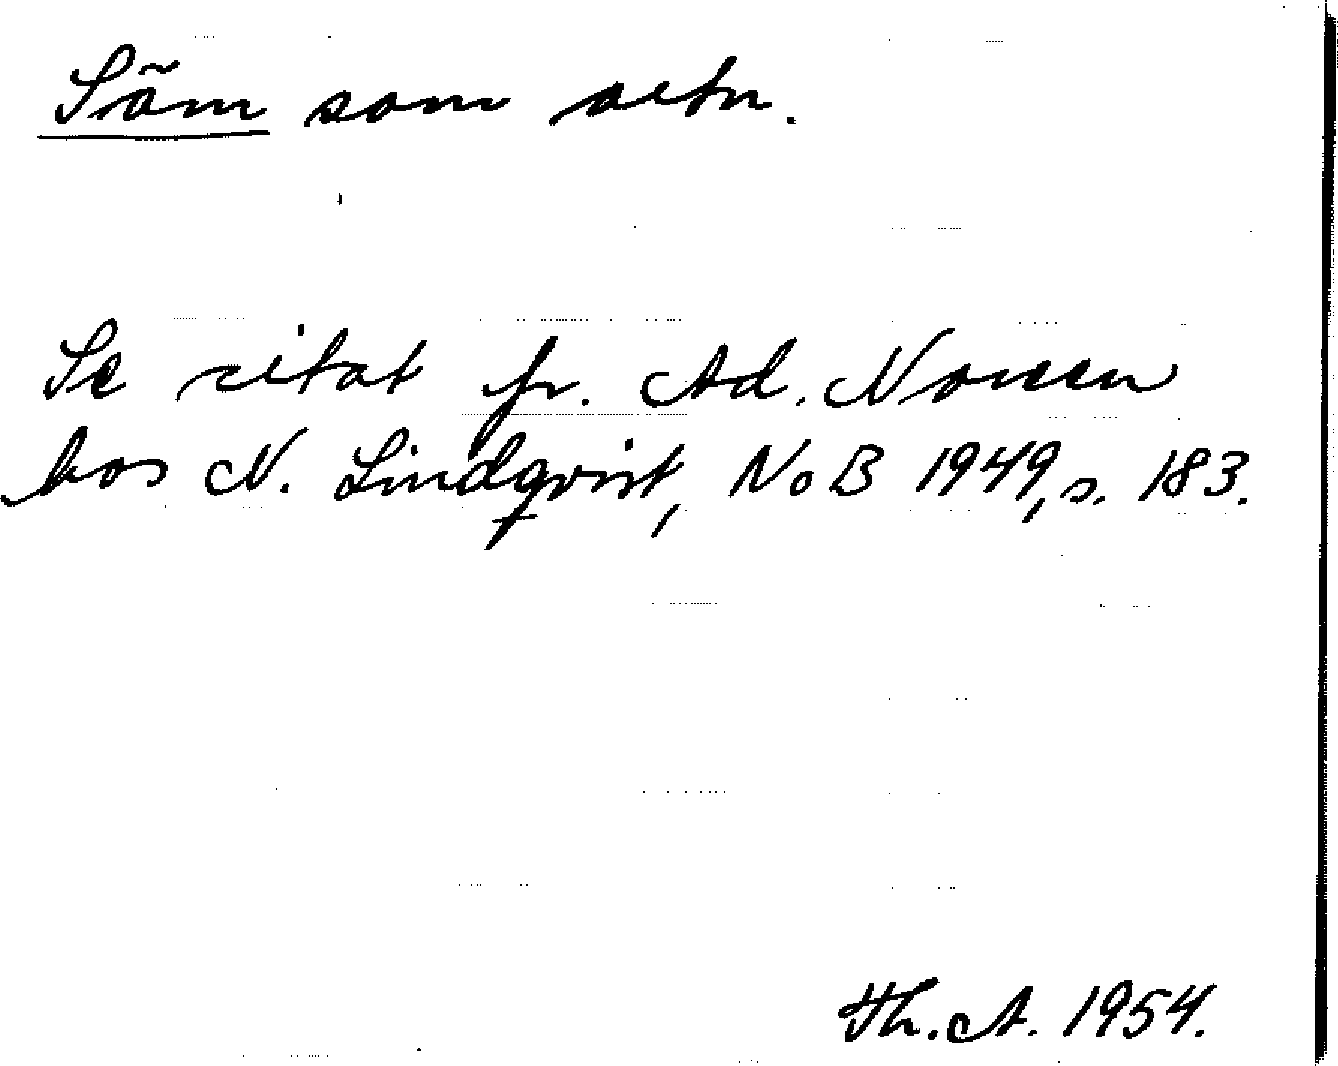 Söm som ortn.
Se citat fr. Ad. Noreen
hos N. Lindqvist, NoB 1949, s. 183.
Th. A. 1954.